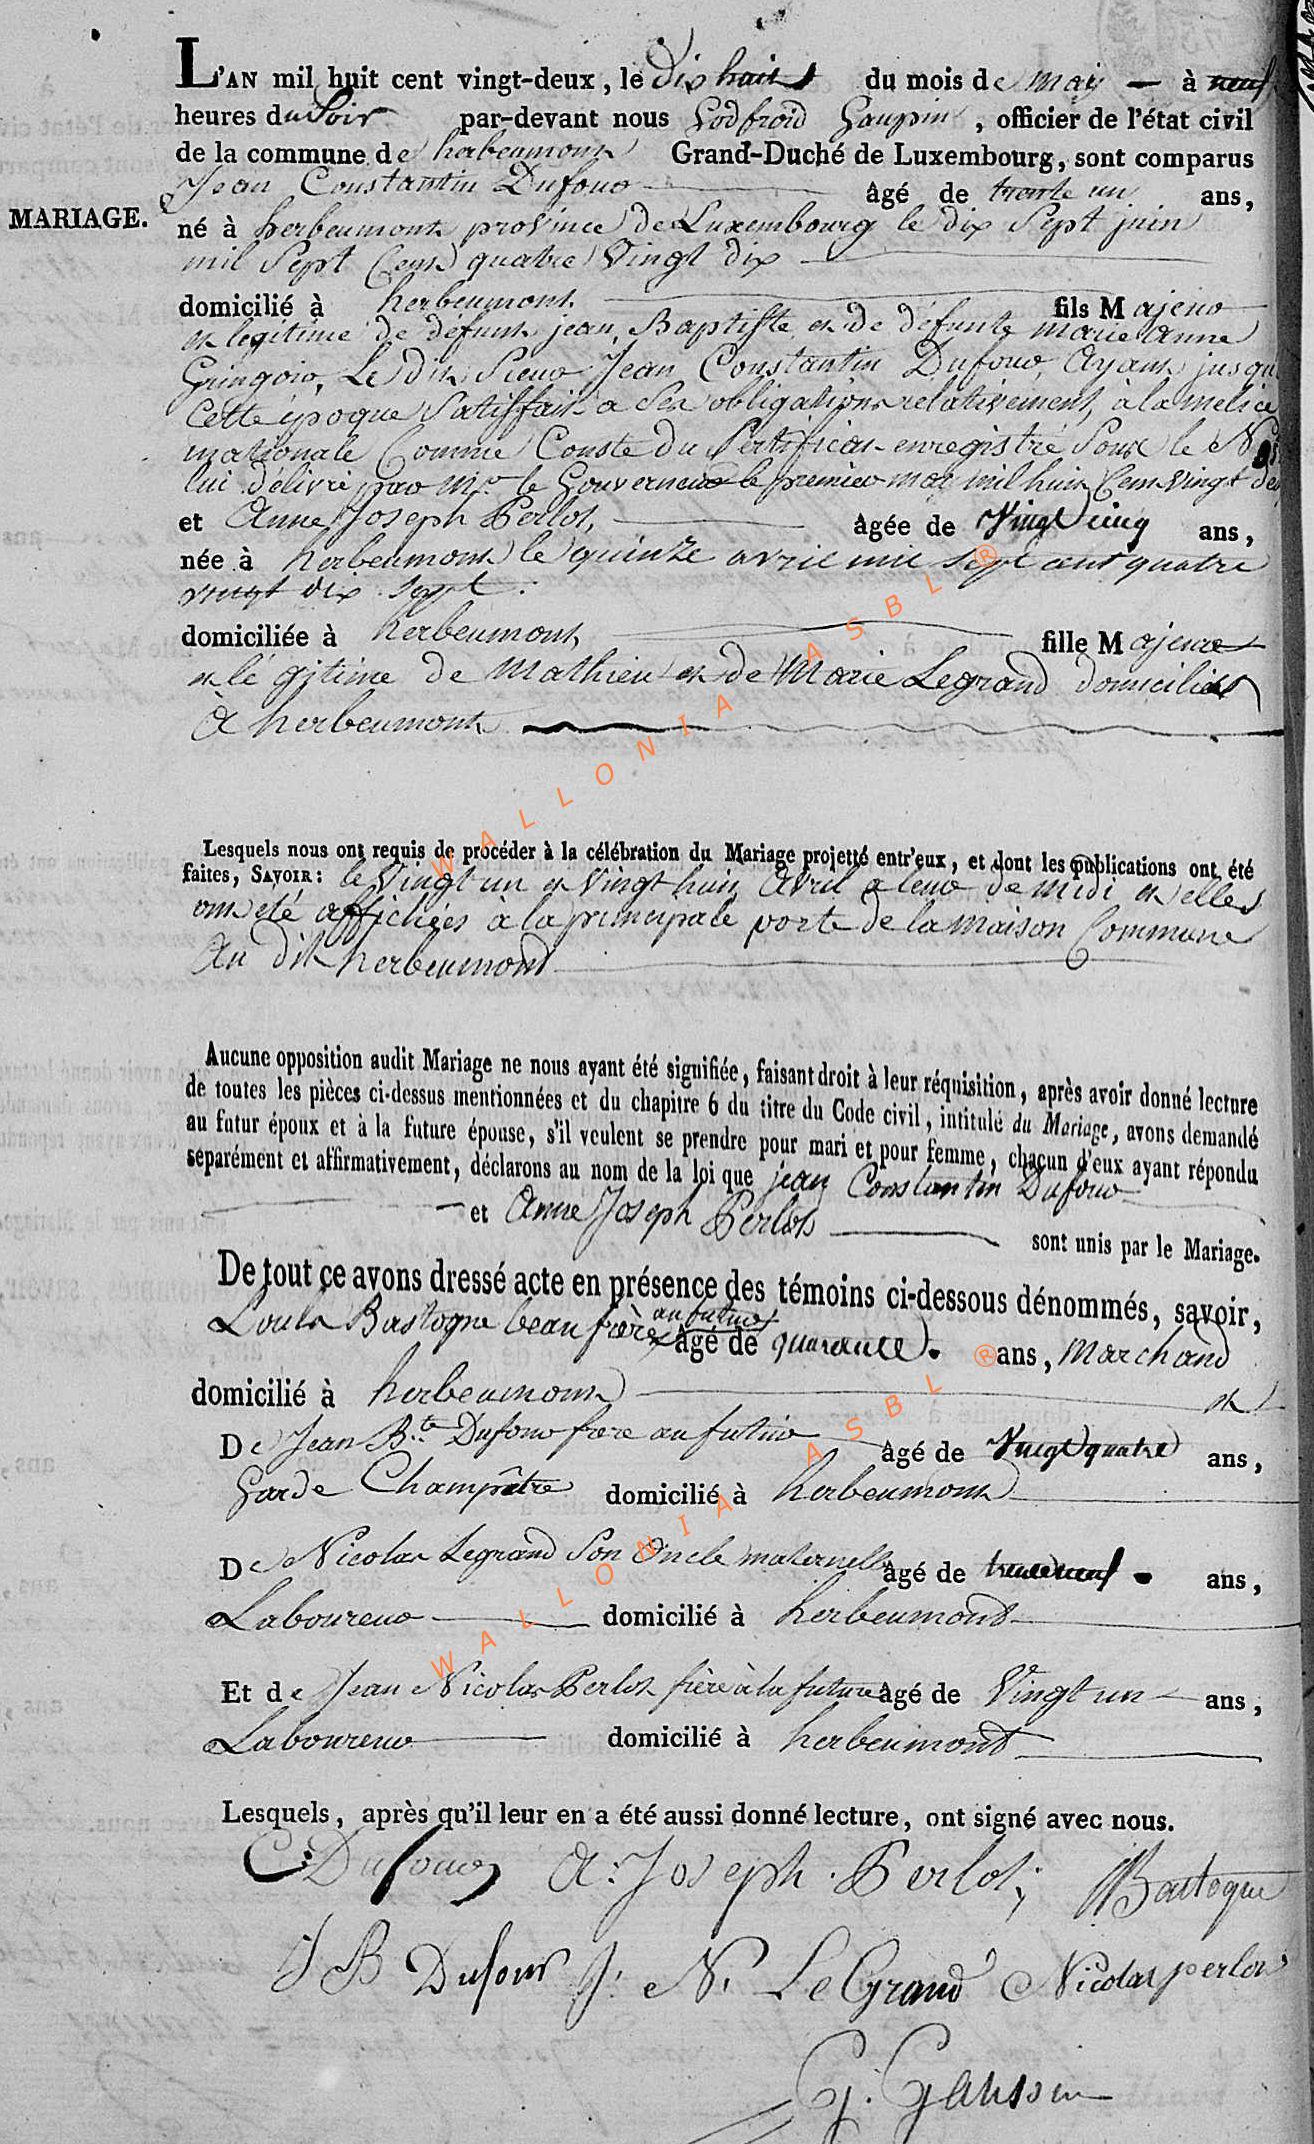 L'AN mil huit cent vingt-deux, le dix huit du mois de may — à neuf
heures du Soir par-devant nous Godfroid Gaupin, officier de l'état civil
de la commune de herbeumont Grand-Duché de Luxembourg, sont comparus
Jean Constantin Dufour âgé de trente un ans,
MARIAGE.
né à herbeumont province de Luxembourg le dix Sept juin
mil Sept Cent quatre Vingt dix
domicilié à herbeumont fils Majeur
et legitime de défunt jean Baptiste et de défunte marie Anne
Gringoir, Le dit Sieur Jean Constantin Dufour, Ayant jusqu
cette époque Satisfait a Ses obligations relativement, à la melice
nationale Comme Conste du Sertificat enregistré Sous le N
lui délivré par Mr le Gouverneur le premier may mil huit Cent Vingt deu
et Anne Joseph Perlot, agée de Vingt cinq ans,
née à herbeumont le quinze avril mil sept cent quatre
vingt dix sept.
domiciliée à herbeumont fille Majeure
et lé gitime de Mathieu et de Marie Legrand domiciliés
à herbeumont
Lesquels nous ont requis de procéder à la célébration du Mariage projetté entr'eux, et dont les publications ont été
faites, SAVOIR: le Vingt un et Vingt huit Avril a leur de midi et elles
ont été affichées à la principale porte de la maison Commune
Au dit herbeumont
Aucune opposition audit Mariage ne nous ayant été signifiée, faisant droit à leur réquisition, après avoir donné lecture
de toutes les pièces ci-dessus mentionnées et du chapitre 6 du titre du Code civil, intitulé du Mariage, avons demandé
au futur époux et à la future épouse, s'il veulent se prendre pour mari et pour femme, chacun d'eux ayant répondu
separément et affirmativement, déclarons au nom de la loi que jean Constantin Dufour
et Anne Joseph Perlot
sont unis par le Mariage.
De tout ce avons dressé acte en présence des témoins ci-dessous dénommés, savoir,
Louis Bastogne beau frère au futur âgé de quarante. ans, Marchand
domicilié à herbeumont et
De Jean B.te Dufour frere au futur âgé de Vingt quatre ans,
Garde Champêtre domicilié à herbeumont
De Nicolas Legrand Son Oncle maternelle âgé de trente neuf ans,
Laboureur domicilié à herbeumont
Et de Jean Nicolas Perlot frère à la future âgé de Vingt un ans,
Laboureur domicilié à herbeumont
Lesquels, après qu'il leur en a été aussi donné lecture, ont signé avec nous.
C: Dufour A: Joseph. Perlot; Bastogne
J B Dufour J: N. LeGrand Nicolas perlot
G. Gaussin
WALLONIA ASBL ®
WALLONIA ASBL ®